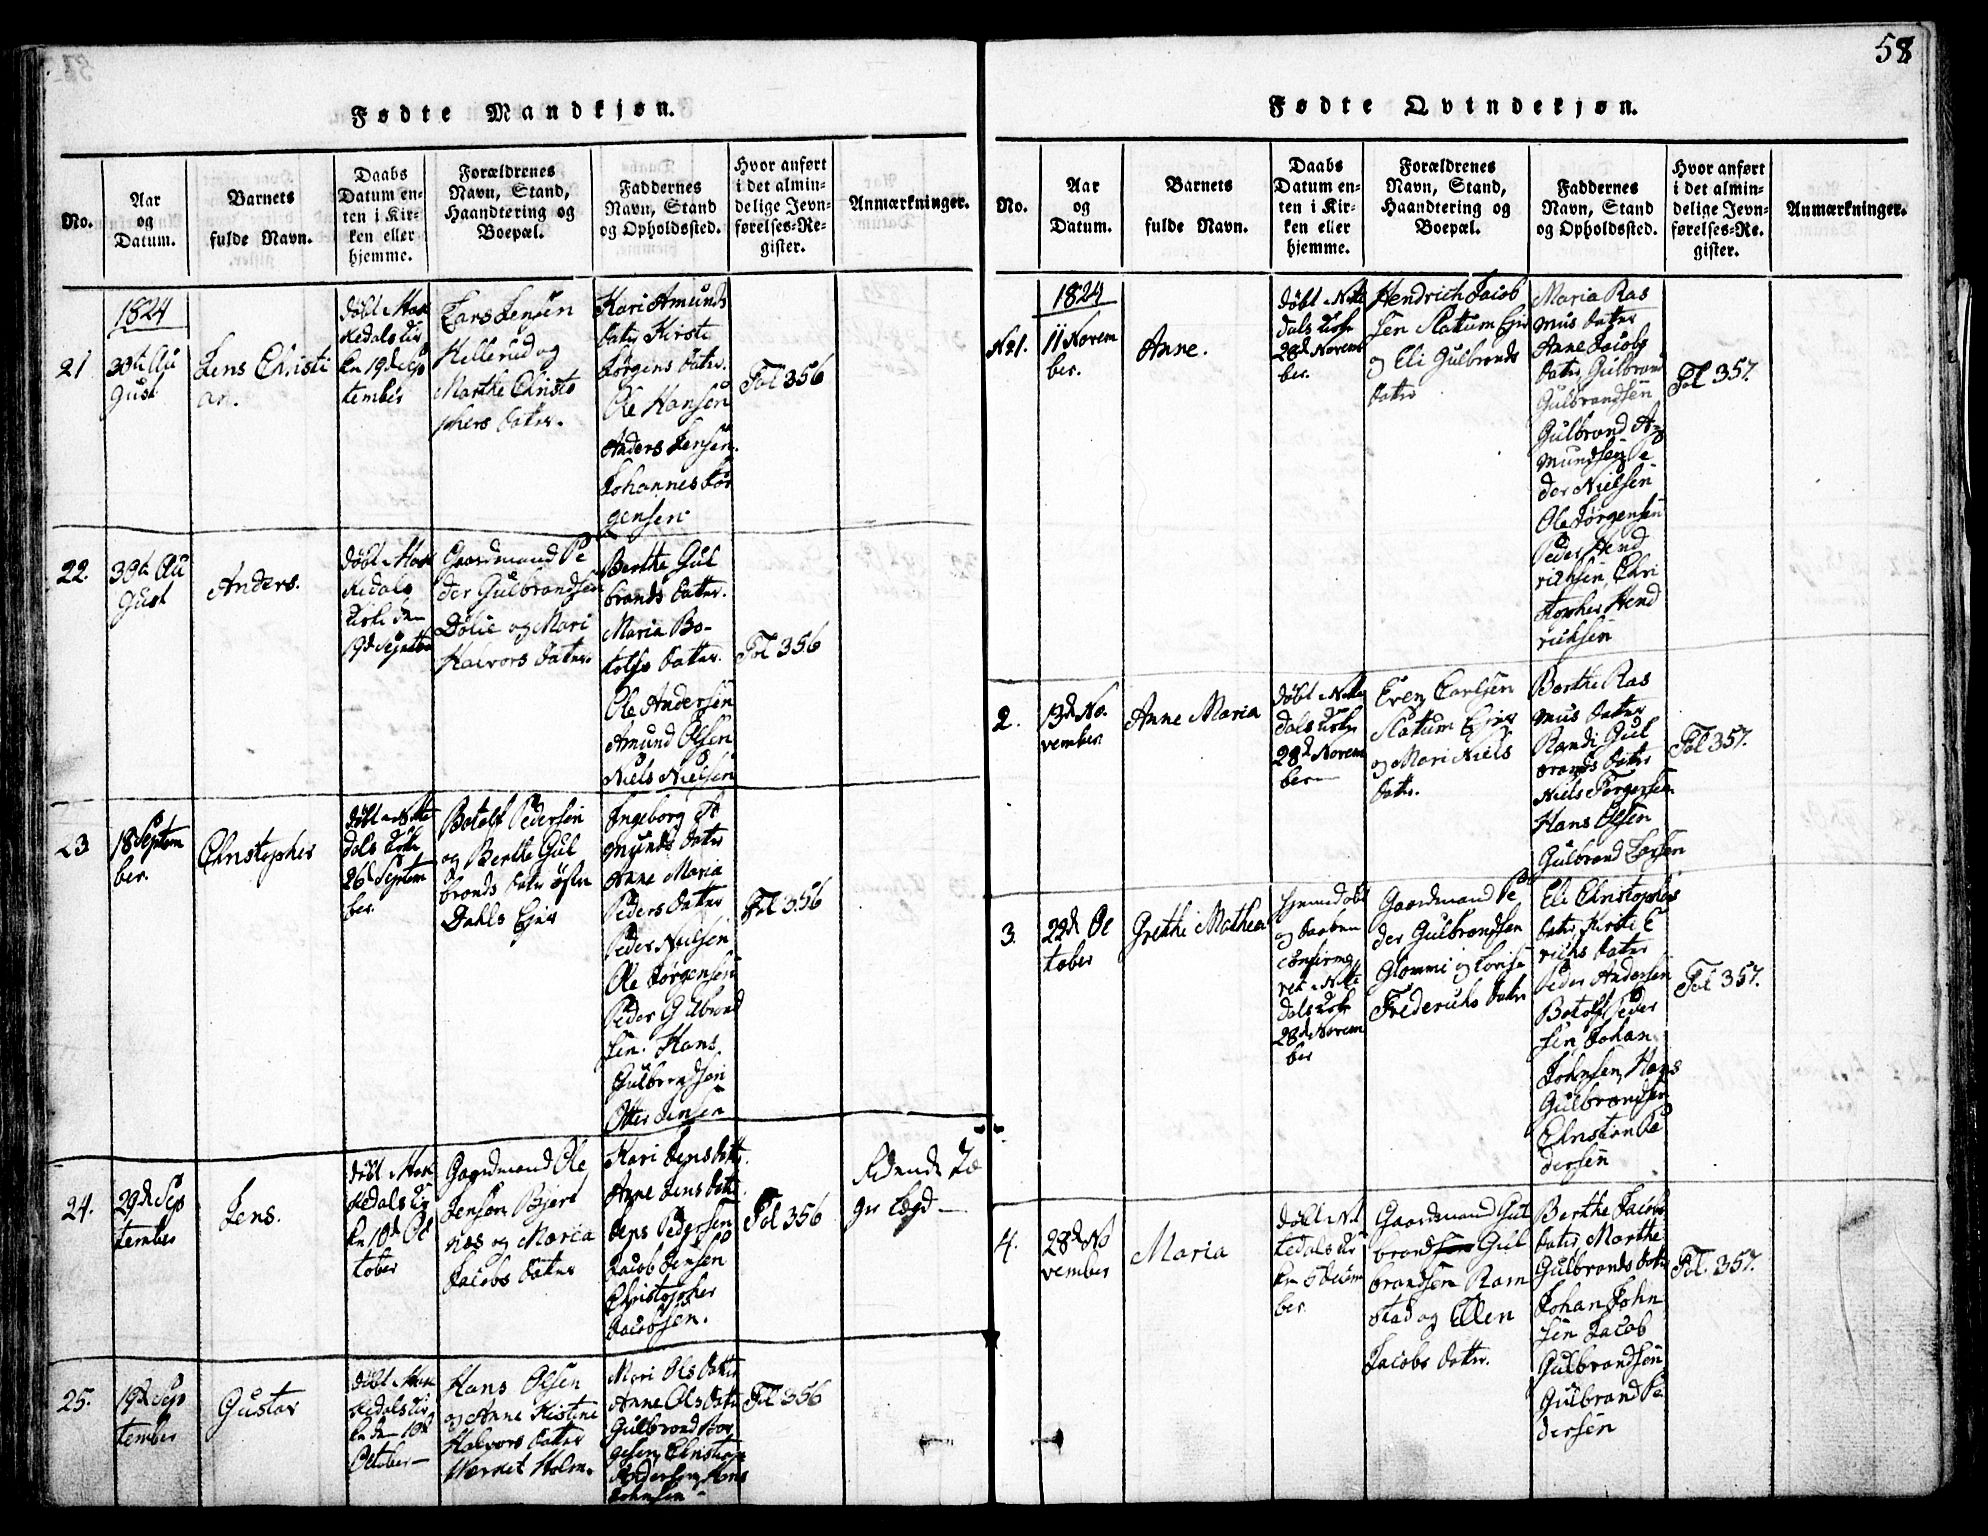 58
Fødte Mandkjøn.
No.
Aar
og
Datum.
Barnets
fulde Navn.
Daabs
Datum en-
ten i Kir-
ken eller
hjemme.
Forældrenes
Navn, Stand,
Haandtering og
Boepæl.
Faddernes
Navn, Stand
og Opholdssted.
Hvor anført
i det almin-
delige Jevn-
førelses-Re-
gister.
Anmærkninger.
1824
21
30te Au
gust
Jens Christi
an.
døbt i Hak
kedals Kir
ke 19d Sep
tember
Lars Jensen
Hellerud og
Marthe Christo
phers datter.
Kari Amunds
datter Kirsti
Jørgens datter.
Ole Hansen
Anders Jensen.
Johannes Jør
gensen
Fol 356
22.
30te Au
gust
Anders.
døbt i Hak
kedals
Kirke den
19d Septbr
Gaardmand Pe
der Gulbrandsen
Dølie og Mari
Halvors datter
Berthe Gul
brands datter.
Maria Bo-
tolfs datter.
Ole Andersen
Amund Olsen
Niels Nielsen
Fol 356
23
18 Septem
ber.
Christopher
døbt i Nitte
dals Kirke
26d Septem
ber.
Botolf Pedersen
og Berthe Gul
brands datter østre
Dahls Ejer
Ingeborg A
munds datter
Anne Maria
Peders datter
Peder Nielsen
Ole Jørgensen
Peder Gulbrand
sen. Hans
Gulbrandsen
Otter Jensen
Fol 356
24.
29d Sep
tember
Jens.
døbt i Hak
kedals Kir
ke 10d Oc
tober
Gaardmand Ole
Jensen Bjert
næs og Maria
Jacobs datter
Kari Jens datt.
Anne Jens datt.
Jens Pedersen
Jacob Jensen
Christopher
Jacobsen.
Fol 356
25.
19d Sep
tember
Gustav
døbt i Hak
kedals Kir
ke den 10d
October
Hans Olsen
og Anne Kistine
Halvors datter
Wærket Holm.
Mari Ols datter
Anne Ols datter
Gulbrand Bør
gesen, Christian
Andersen, Hans
Johnsen
Fol 356
Fødte Qvindekjøn.
No.
Aar
og
Datum.
Barnets
fulde Navn.
Daabs
Datum en-
ten i Kir-
ken eller
hjemme.
Forældrenes
Navn, Stand,
Haandtering og
Boepæl.
Faddernes
Navn, Stand
og Opholdssted.
Hvor anført
i det almin-
delige Jevn-
førelses-Re-
gister.
Anmærkninger.
1824
No 1.
11 Novem
ber.
Anne.
døbt i Nitte
dals Kirke
28d Novem
ber.
Hendrich Jacob
sen Slattum Ejer
og Eli Gulbrands
datter
Maria Ras
mus datter
Anne Jacobs
datter, Gulbrand
Gulbrandsen
Gulbrand A-
mundsen, Pe
der Nielsen
Ole Jørgensen
Peder Hend
richsen, Chri
stopher Hend
richsen
Fol 357.
2.
13d No.
vember.
Anne Maria
døbt i Nitte
dals Kirke
28d Novem
ber
Even Carlsen
Slattum Ejer
og Mari Niels
datter.
Berthe Ras
mus datter
Randi Gul
brands datter
Niels Torgersen
Hans Olsen
Gulbrand Larsen
Fol 357.
3.
22d Oc
tober
Grethe Mathea
hjemmedøbt
og daaben
confirme
ret i Nitte
dals Kirke
28d Novem
ber
Gaardmand Pe
der Gulbrandsen
Glommi og Lovise
Frederichs datter
Eli Christophers
datter, Kirsti E
richs datter
Peder Andersen
Botolf Peder
sen Johan
Johnsen, Hans
Gulbrandsen
Christian Pe
dersen
Fol 357.
4.
28d No
vember
Maria
døbt i Nit
tedals Kir
ke 5 Decem
ber.
Gaardmand Gul
brand Gul
brandsen Ram
stad og Ellen
Jacobs datter.
Berthe Jacobs
datter Marthe
Gulbrands datter
Johan John
sen Jacob
Gulbrandsen
Gulbrand Pe
dersen
Fol. 357.